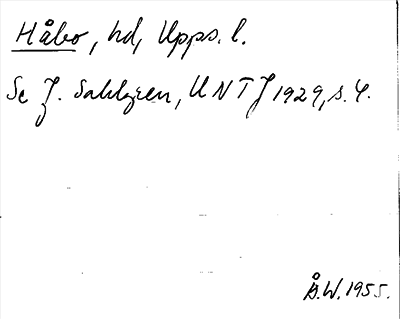 Håbo, hd, Upps. l.
Se J. Sahlgren, UNTJ 1929, s. 4.
Å.W. 1955.